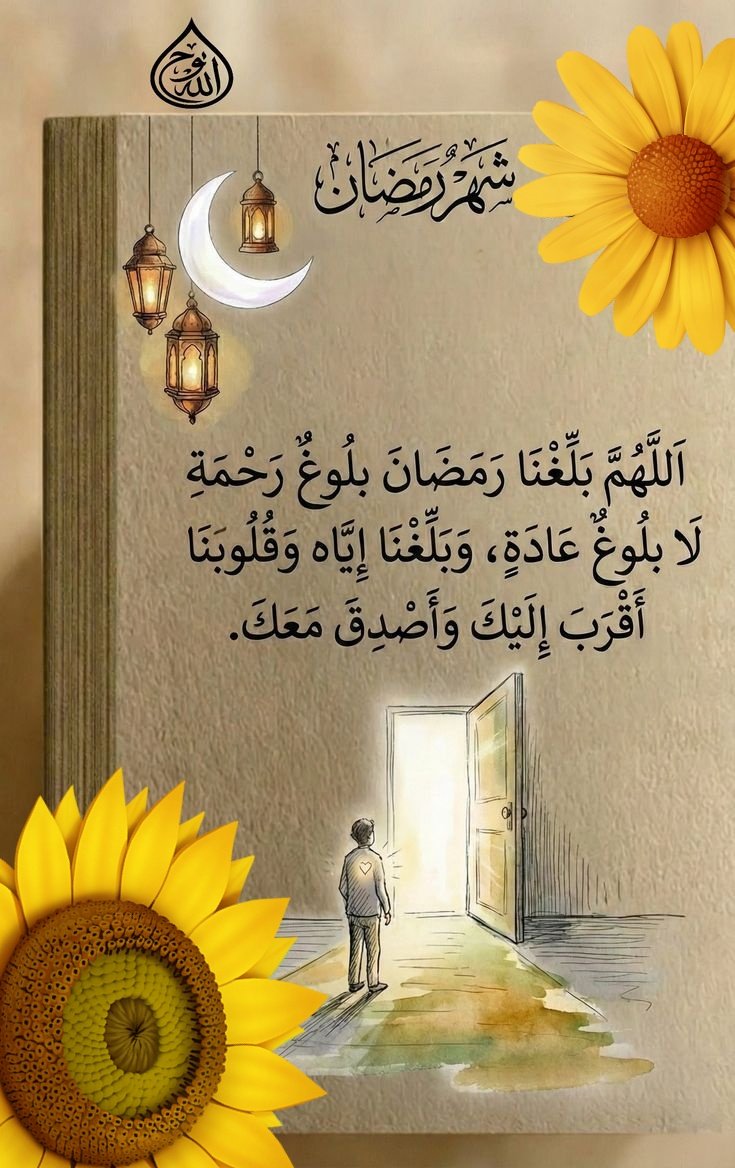 نوح الله
شَهْرُ رَمَضَان
اَللَّهُمَّ بَلِّغْنَا رَمَضَانَ بلُوغٌ رَحْمَةِ
لَا بلُوغٌ عَادَةٍ، وَبَلِّغْنَا إِيَّاه وَقُلُوبَنَا
أَقْرَبَ إِلَيْكَ وَأَصْدِقَ مَعَكَ.